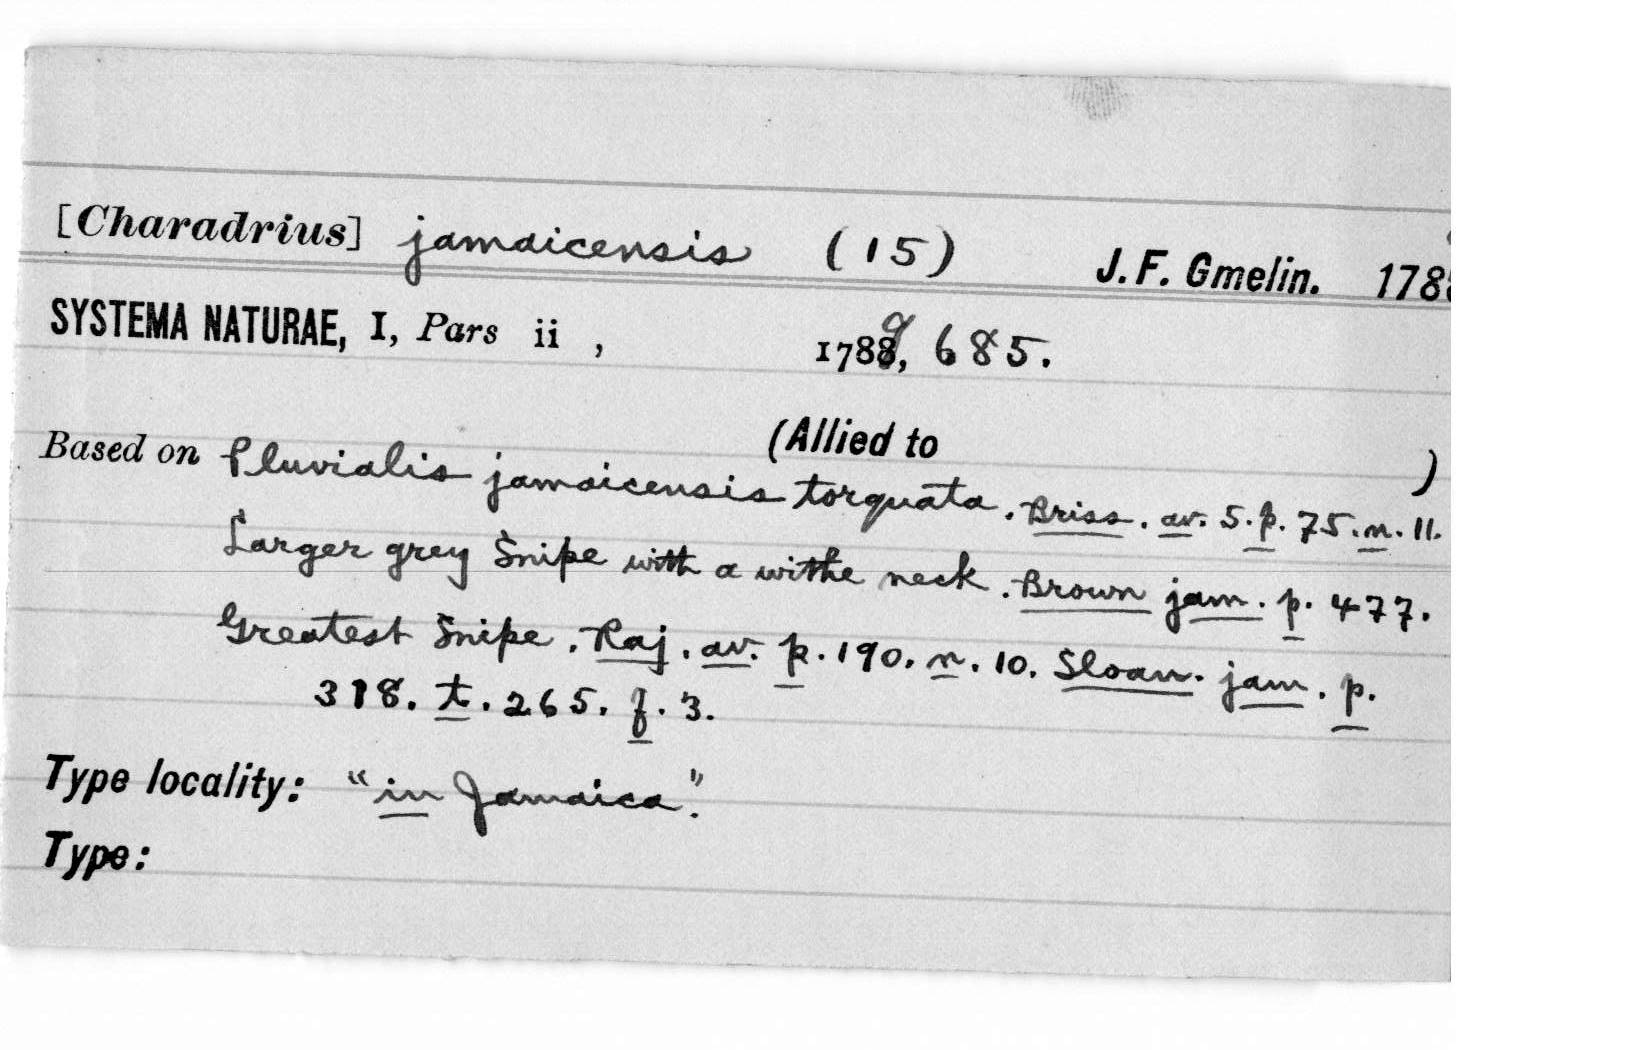 [Charadrius] jamaicensis (15) J. F. Gmelin. 178
SYSTEMA NATURAE, I, Pars ii , 1789, 685.
(Allied to )
Based on Pluvialis jamaicensis torquata. Briss. av. 5. p. 75. n. 11.
Larger grey Snipe with a withe neck. Brown jam. p. 477.
Greatest Snipe. Raj. av. p. 190. n. 10. Sloan. jam. p.
318. t. 265. f. 3.
Type locality: "in Jamaica".
Type: